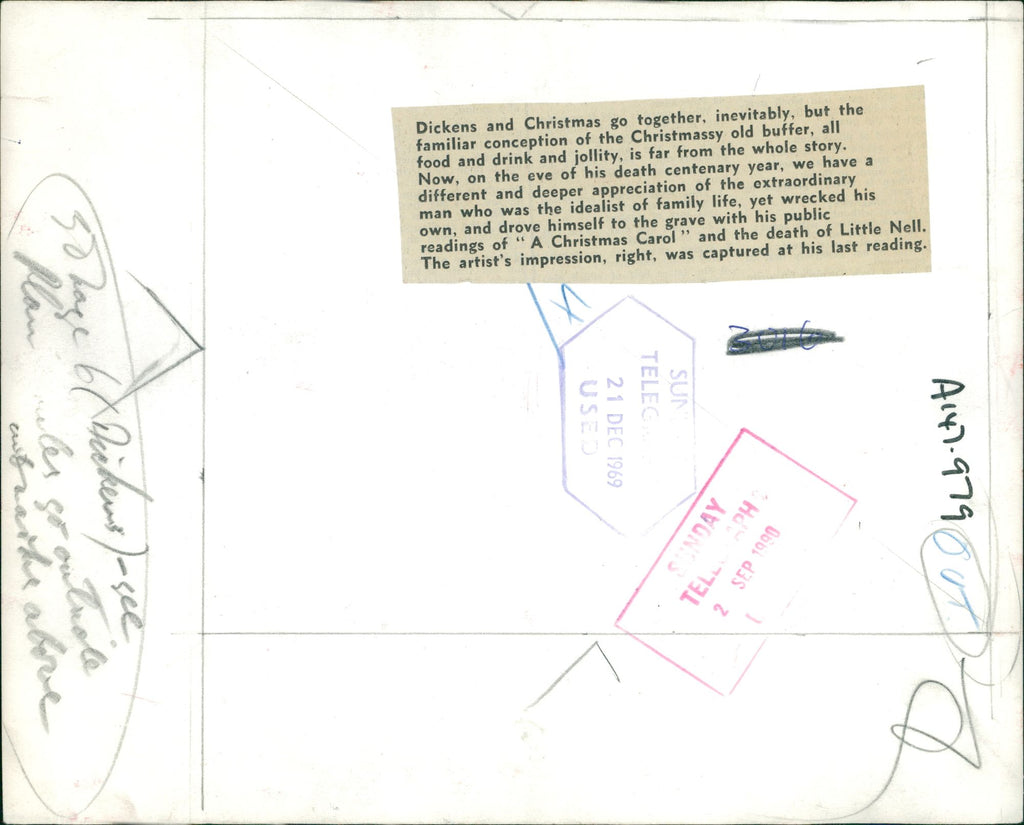 Dickens and Christmas go together, inevitably, but the
familiar conception of the Christmassy old buffer, all
food and drink and jollity, is far from the whole story.
Now, on the eve of his death centenary year, we have a
different and deeper appreciation of the extraordinary
man who was the idealist of family life, yet wrecked his
own, and drove himself to the grave with his public
readings of “ A Christmas Carol ” and the death of Little Nell.
The artist's impression, right, was captured at his last reading.
SUN
TELEG
21 DEC 1969
USED
SUNDAY
TELEGRAPH
2 SEP 1990
A147-979
OUT
Page 6 (Dickens) - see
Plan rules go outside
marks above